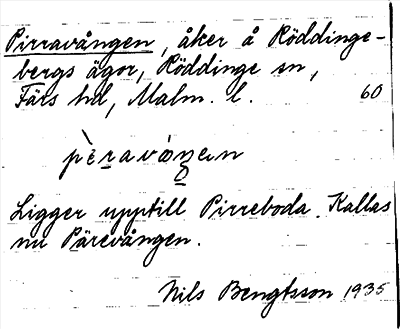 Pirravången, åker å Röddinge-
bergs ägor, Röddinge sn,
Färs hd, Malm. l. 60
Ligger upptill Pirreboda. Kallas
nu Pärevången.
Nils Bengtsson 1935